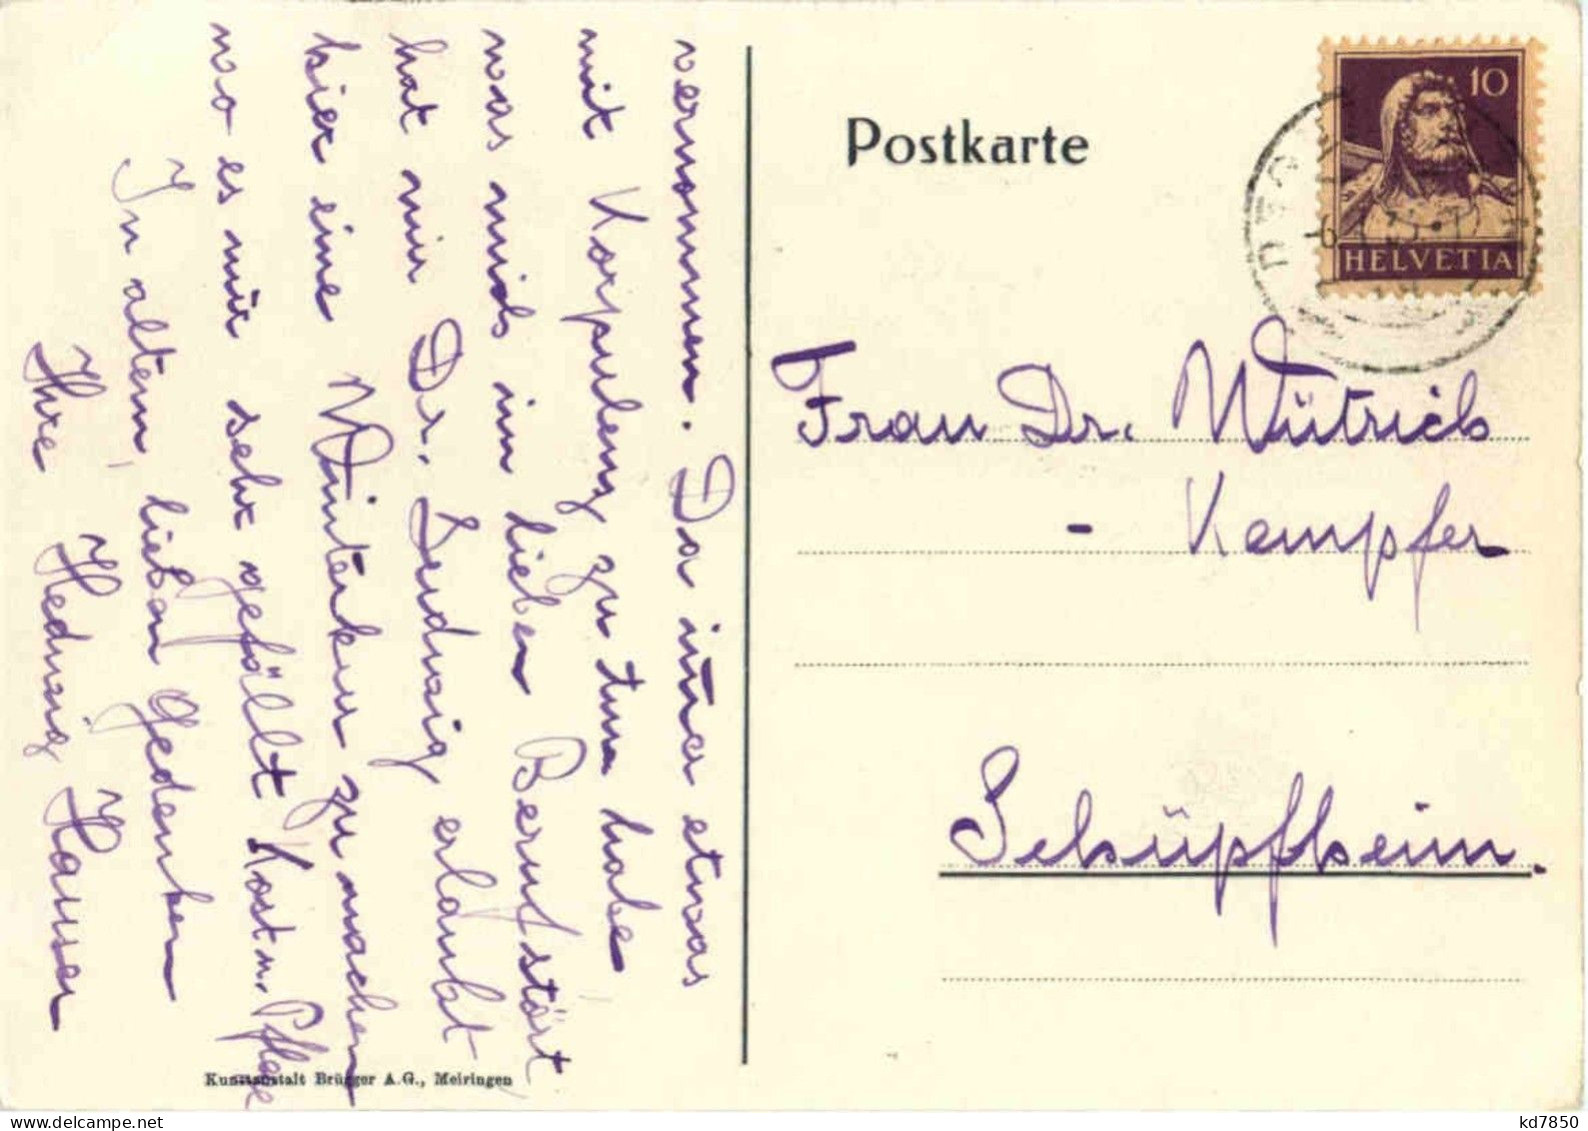 vernommen. Da ica etwas
mit Korpulenz zu tun habe,
was mich im lieben Beruf stört
hat mir Dr. Ludwig erlaubt
hier eine Winterkur zu machen
wo es mir sehr gefällt Kost u. Pflege
In altem, lieben Gedenken
Ihre Hedwig Hauser
Postkarte
10
HELVETIA
Frau Dr. Wütrich
- Kempfer
Schüpfheim.
Kunstanstalt Brügger A.G., Meiringen
kd7850